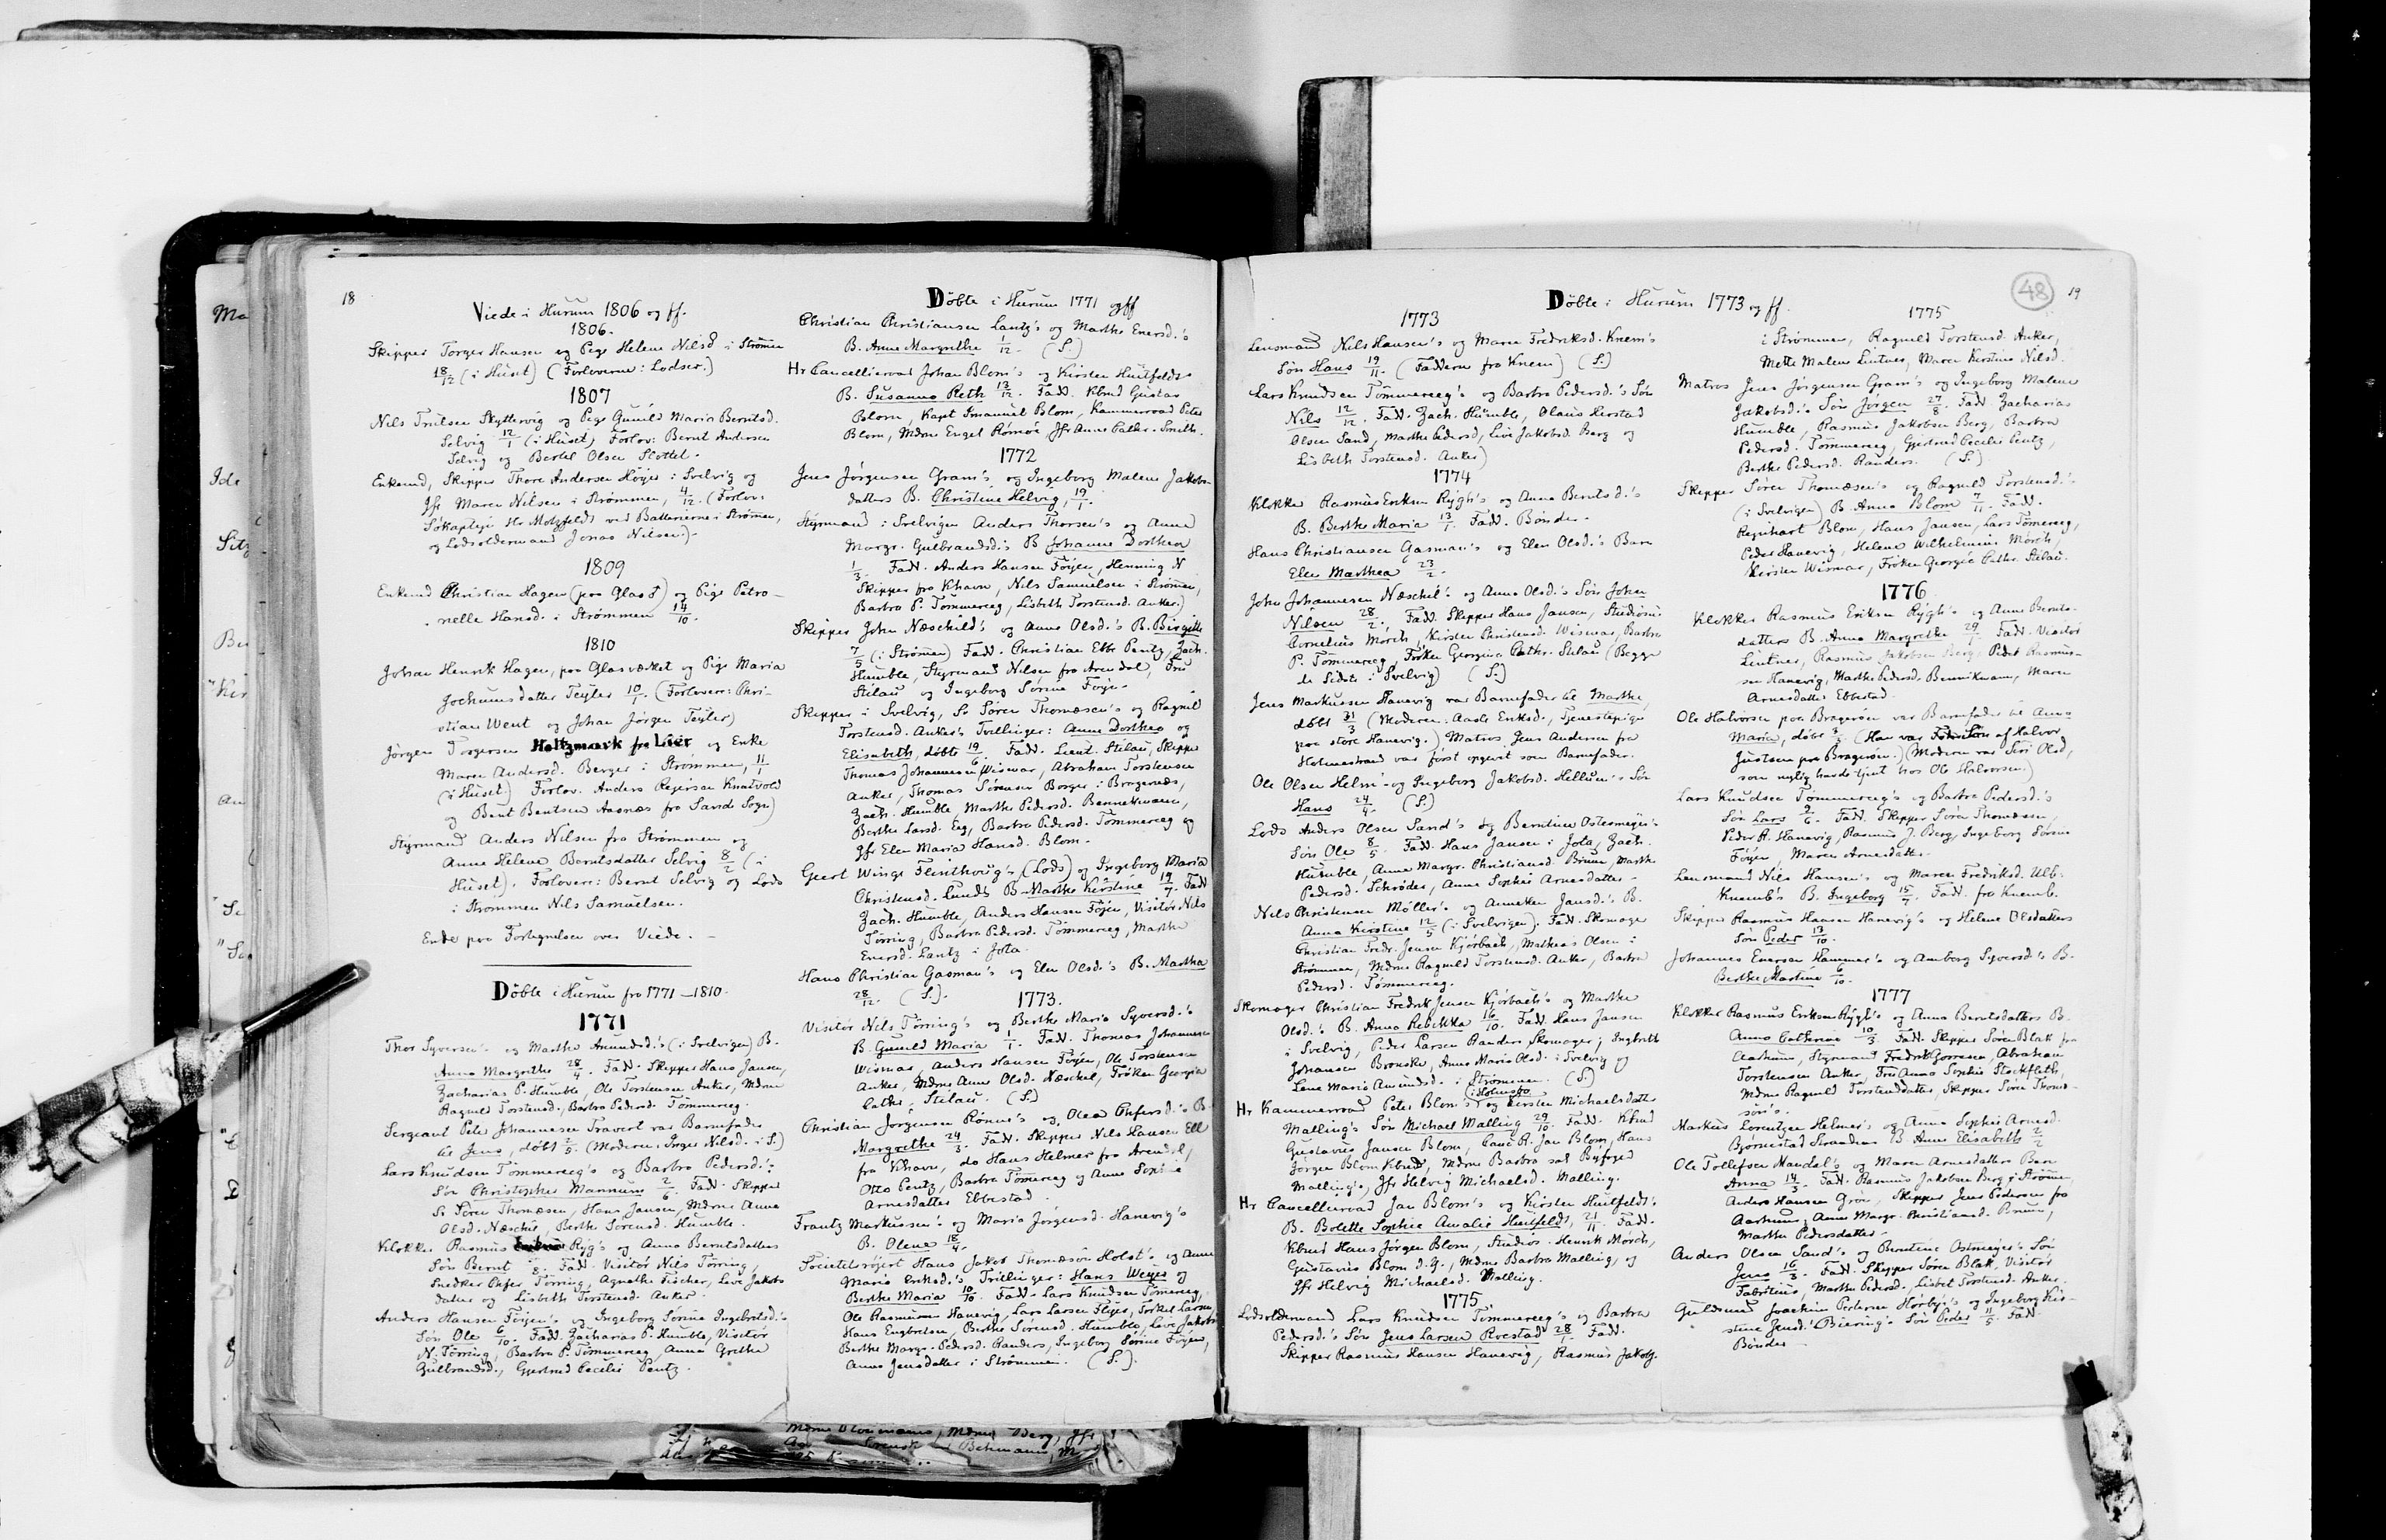 18
Viede i Hurum 1806 og ff.
1806.
Skipper Torger Hansen og Pige Helene Nilsd i Strömm
18/12 (i Huset) (Forloverne: Lodser.)
1807
Nils Truelsen Skyttervig og Pige Gunild Maria Berntsd.
Selvig 12/1 (i Huset) Forlov: Bernt Andersen
Selvig og Bertel Olsen Slottet.
Enkemd, Skipper Thore Andersen Höyer i Svelvig og
Jfr Maren Nilsen i Strömmen, 4/12. (Forlov:
Søkaptejn Hr Motzfeldt ved Batterierne i Strömmen,
og Lodsoldermand Jonas Nilsen).
1809
Enkemd Christian Hagen (paa Glas) og Pige Petro-
nelle Hansd. i Strömmen 14/10.
1810
Johan Henrik Hagen, paa Glasverket og Pige Maria
Jochumsdatter Teyler 10/1. (Forlovere: Chri-
stian Went og Johan Jörgen Teyler)
Jörgen Torgersen Holtzmark fra Lier og Enke
Maren Andersd. Berger i Strommen, 11/1
(i Huset) Forlov. Anders Rejersen Knatvold
og Bent Bentsen Aasnæs fra Sande Sogn)
Styrmand Anders Nilsen fra Strömmen og
Anne Helene Berntsdatter Selvig 8/2 (i
Huset). Forlovere: Bernt Selvig og Lods
i Strommen Nils Samuelsen.
Ende paa Fortegnelsen over Viede.
Döbte i Hurum fra 1771–1810.
1771
Thor Syversen's og Marthe Amundsd.'s (i Svelvigen) B.
Anna Margrethe 28/4. Fadd. Skipper Hans Jansen,
Zacharias P. Humble, Ole Torstensen Anker, Mdme
Ragnild Torstensd., Barbra Pedersd. Tömmereeg.
Sergeant Peter Johannesen Travert var Barnefader
til Jens, döbt 2/5. (Moderen: Inger Nilsd. i S.)
Lars Knudsen Tömmereeg's og Barbra Pedersd.'s
Sön Christopher Mannum 2/6. Fadd. Skipper
Sr Sören Thomæsen, Hans Jansen, Mdme Anna
Olsd. Næschel, Berthe Sörensd. Humble.
Klokker Rasmus Ryg's og Anna Berntsdatters
Sön Bernt /8. Fadd. Visitör Nils Törring,
Snedker Peder Törring, Agnethe Fischer, Live Jakobs
datter og Lisbeth Torstensd. Anker.
Anders Hansen Föyen's og Ingeborg Sörine Ingebretsd.'s
Sön Ole 6/10. Fadd. Zacharias P. Humble, Visitör
N. Törring, Barbra P. Tömmereeg, Anna Grethe
Gulbrandsd., Gjertrud Cecilie Pentz.
Döbte i Hurum 1771 og ff
Christian Christiansen Lantz's og Marthe Enersd.'s
B. Anne Margrethe 1/12. (S.)
Hr Cancelliraad Johan Blom's og Kirsten Huitfeldts
B. Susanna Reth 13/12. Fadd. Kbmd Gustav
Blom, Kapt Imanuel Blom, Kammerraad Peter
Blom, Mdme Engel Römoe, Jfr Anne Cathr. Smith.
1772
Jens Jörgensen Gram's og Ingeborg Malene Jakobs-
datters B. Christine Helvig, 19/1.
Styrmand i Svelvigen Anders Thorsen's og Anne
Margr. Gulbrandsd.'s B Johanne Dorthea
1/3. Fadd. Anders Hansen Föyen, Henning N
Skipper fra Khavn, Nils Samuelsen i Strömmen,
Barbra P. Tömmereeg, Lisbeth Torstensd. Anker.)
Skipper John Næschild's og Anne Olsd.'s B. Birgitte
7/5 (i Strömmen) Fadd. Christian Ebbe Pentz, Zach.
Humble, Styrmand Nilsen fra Arendal, Fru
Stilau og Ingeborg Sörine Föyn.
Skipper i Svelvig, Sr Sören Thomæsen's og Ragnild
Torstensd. Anker's Tvillinger: Anne Dorthea og
Elisabeth, döbte 19/6. Fadd. Lieut. Stilau, Skipper
Thomas Johannesen Wismar, Abraham Torstensen
Anker, Thomas Sörensen Borger i Bragernæs,
Zach. Humble, Marthe Pedersd. Bennekmann,
Berthe Larsd. Eeg, Barbra Pedersd. Tömmereeg og
Jfr Elen Maria Hansd. Blom.
Geert Winge Flinthoug's (Lods) og Ingeborg Maria
Christensd. Lunds B. Marthe Kirstine 19/7. Fadd
Zach. Humble, Anders Hansen Föyen, Visitör Nils
Törring, Barbra Pedersd. Tömmereeg, Marthe
Enersd. Lantz i Jota.
Hans Christian Gasman's og Elen Olsd.'s B. Martha
28/12. (S.).
1773.
Visitör Nils Törring's og Berthe Maria Syversd.'s
B. Gunild Maria 1/1. Fadd. Thomas Johannesen
Wismar, Anders Hansen Föyen, Ole Torstensen
Anker, Mdme Anne Olsd. Næschel, Fröken Georgia
Cathr. Stilau. (S.)
Christian Jörgensen Rönne's og Olea Pedersd.'s B
Margrethe 24/3. Fadd. Skipper Nils Hansen Ell
fra Khavn, do Hans Helmer fra Arendal,
Otto Pentz, Barbra Tömereeg og Anne Sophie
Arnesdatter Ebbestad.
Frantz Markussen's og Maria Jörgensd. Hanevig's
B. Olene 18/4.
Societetsröjert Hans Jakob Thomæsön Holst's og Anne
Maria Eriksd.'s Trillinger: Hans Weyer og
Berthe Maria 10/10. Fadd. Lars Knudsen Tömereeg,
Ole Rasmussen Hanevig, Lars Larsen Flyer, Torkel Larsen,
Hans Engbretsen, Berthe Sörensd. Humble, Live Jakobs
Berthe Margr. Pedersd. Randers, Ingeborg Sörine Föyen,
Anne Jensdatter i Strömmen. (S.).
Döbte i Hurum 1773 og ff.
48
19
1773
Lensmand Nils Hansen's og Maren Fredriksd. Knem's
Sön Hans 19/11. (Faddern fra Knem) (S.)
Lars Knudsen Tömmereeg's og Barbra Pedersd.'s Sön
Nils 12/12. Fadd. Zach. Humble, Olaus Herstad
Olsen Sand, Marthe Pedersd, Live Jakobsd. Berg og
Lisbeth Torstensd. Anker)
1774
Klokker Rasmus Eriksen Rygh's og Anna Berntsd.'s
B. Berthe Maria 13/1. Fadd. Bönder.
Hans Christiansen Gasman's og Elen Olsd.'s Barn
Elen Marthea 23/2.
John Johannesen Næschel's og Anne Olsd.'s Sön John
Nilsen 28/2. Fadd. Skipper Hans Jansen, Studiosus
Cornelius Mörch, Kirsten Christensd. Wismar, Barbra
P. Tömmereeg, Fröken Georgina Cathr. Stilau (Begge
de Sidste i Svelvig) (S.)
Jens Markussen Hanevig var Barnefader til Marthe,
döbt 31/3 (Moderen: Aaste Eriksd., Tjenestepige
paa store Hanevig.) Matros Jens Andersen fra
Holmestrand var först opgivet som Barnefader.
Ole Olsen Helm's og Ingeborg Jakobsd. Hellum's Sön
Hans 24/4. (S.)
Lods Anders Olsen Sand's og Berntine Ostermeyer's
Sön Ole 8/5. Fadd. Hans Jansen i Jota, Zach.
Humble, Anne Margr. Christiansd. Bruun, Marthe
Pedersd. Schröder, Anne Sophie Arnesdatter.
Nils Christensen Möller's og Anneken Jansd.'s B.
Anna Kirstine 12/5 (i Svelvigen). Fadd. Skomager
Christian Fredr. Jensen Kjörbach, Mathias Olsen i
Strömmen, Mdme Ragnild Torstensd. Anker, Barbra
Pedersd. Tömmereeg.
Skomager Christian Fredrik Jensen Kjörbach's og Marthe
Olsd.'s B. Anna Rebekka 16/10. Fadd. Hans Jansen
i Svelvig, Peder Larsen Randers Skomager, Ingbritt
Johansen Brenske, Anne Maria Olsd. i Svelvig og
Lene Maria Amundsd. i Strömmen. (S.)
Hr Kammerraad Peter Blom's (i Holmsbo) og Kirsten Michaelsdatter
Malling's Sön Michael Malling 29/10. Fadd. Kbmd
Gustavus Jansen Blom, Canc.R. Jan Blom, Hans
Jörgen Blom Kbmd, Mdme Barbra sal Byfoged
Malling's, Jfr Helvig Michaelsd. Malling.
Hr Cancelliraad Jan Blom's og Kirsten Huitfeldt's
B. Bolette Sophie Amalie Huitfeldt, 21/11. Fadd.
Kbmd Hans Jörgen Blom, Studios. Henrik Mörch,
Gustavius Blom d.Y., Mdme Barbra Malling, og
Jfr Helvig Michaelsd. Malling.
1775
Lodsoldermand Lars Knudsen Tömmereeg's og Barbra
Pedersd.'s Sön Jens Larsen Rovestad 28/1. Fadd.
Skipper Rasmus Hansen Hanevig, Rasmus Jakobs.
1775
i Strömmen, Ragnild Torstensd. Anker,
Mette Malene Lintner, Maren Kirstine Nilsd.
Matros Jens Jörgensen Gram's og Ingeborg Malene
Jakobsd.'s Sön Jörgen 27/8. Fadd Zacharias
Humble, Rasmus Jakobsen Berg, Barbra
Pedersd. Tömmereeg, Gjertrud Cecilie Pentz,
Berthe Pedersd. Randers. (S.)
Skipper Sören Thomæsen's og Ragnild Torstensd.'s
(i Svelvigen) B. Anne Blom 7/11. Fadd.
Reynhart Blom, Hans Jansen, Lars Tömereeg,
Peder Hanevig, Helene Wilhelmine Mörch,
Kirsten Wismar, Fröken Georgie Cathr. Stilau.
1776
Klokker Rasmus Eriksen Rygh's og Anne Bernts-
datters B. Anne Margrethe 29/1. Fadd. Visitör
Lintner, Rasmus Jakobsen Berg, Peder Rasmus-
sen Hanevig, Marthe Pedersd. Bennikmann, Maren
Arnesdatter Ebbestad.
Ole Halvorsen paa Bragerøen var Barnefader til Anne
Maria, döbt 3/ (Han var Sön af Halvor
Justsen paa Bragerøen.) (Moderen var Siri Olsd,
som nylig havde tjent hos Ole Halvorsen.)
Lars Knudsen Tömmereeg's og Barbra Pedersd.'s
Sön Lars 9/6. Fadd. Skipper Sören Thomæsen,
Peder R. Hanevig, Rasmus J. Berg, Ingeborg Sörine
Föyen, Maren Arnesdatter.
Lensmand Nils Hansen's og Maren Fredriksd. Ulb.
Knemb's B. Ingeborg 15/7. Fadd. fra Knemb.
Skipper Rasmus Hansen Hanevig's og Helene Olsdatters
Sön Peder 13/10.
Johannes Enersen Hammer's og Amborg Syversd.'s B.
Berthe Martine 6/10.
1777
Klokker Rasmus Eriksen Rygh's og Anna Berntsdatters B.
Anne Cathrine 10/3. Fadd. Skipper Sören Blak fra
Aarhuus, Styrmand Fredrik Gorresen, Abraham
Torstensen Anker, Fru Anna Sophie Stockfleth,
Mdme Ragnild Torstensdatter, Skipper Sören Thomæ-
sön's.
Markus Lorentzen Helmer's og Anne Sophie Arnesd.
Bjørnestad Strandens B. Anne Elisabeth 2/2
Ole Tollefsen Mandal's og Maren Arnesdatters Barn
Anna 14/3. Fadd. Rasmus Jakobsen Berg i Strömm,
Anders Hansen Gröe, Skipper Jens Pedersen fra
Aarhuus, Anne Margr. Christiansd. Bruun,
Marthe Pedersdatter.
Anders Olsen Sand's og Berntine Ostmeyer's Sön
Jens 16/3. Fadd. Skipper Sören Blak, Visitör
Fabritius, Marthe Pedersd., Lisbet Torstensd. Anker.
Guldsmed Joachim Pedersen Hörbye's og Ingeborg Kir-
stine Jensd. Biering's Sön Peder 11/5. Fadd.
Bönder